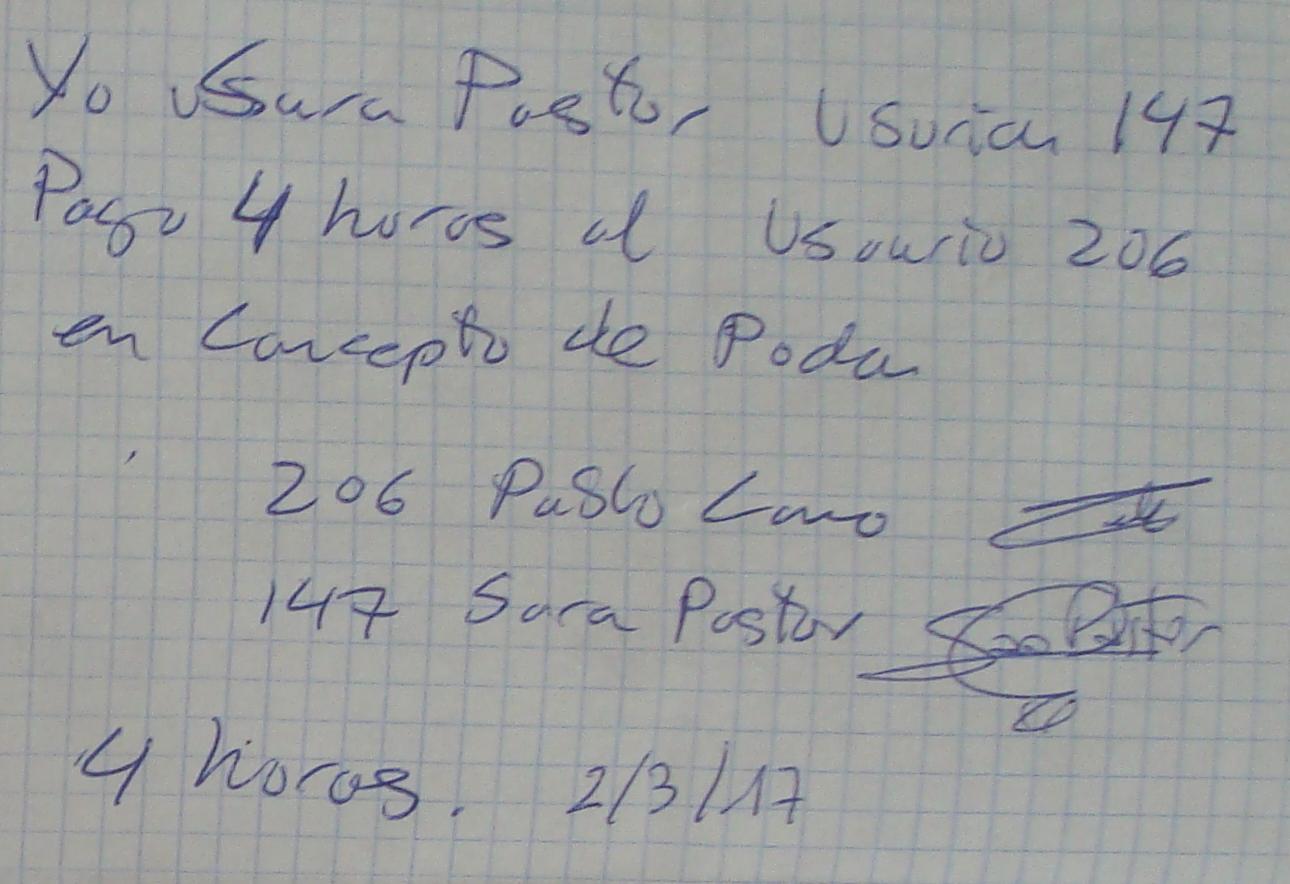 Yo Sara Pastor Usuria 147
Pago 4 horas al Usuario 206
en Concepto de Poda
206 Pablo Cano
147 Sara Pastor Sara Pastor
4 horas. 2/3/17